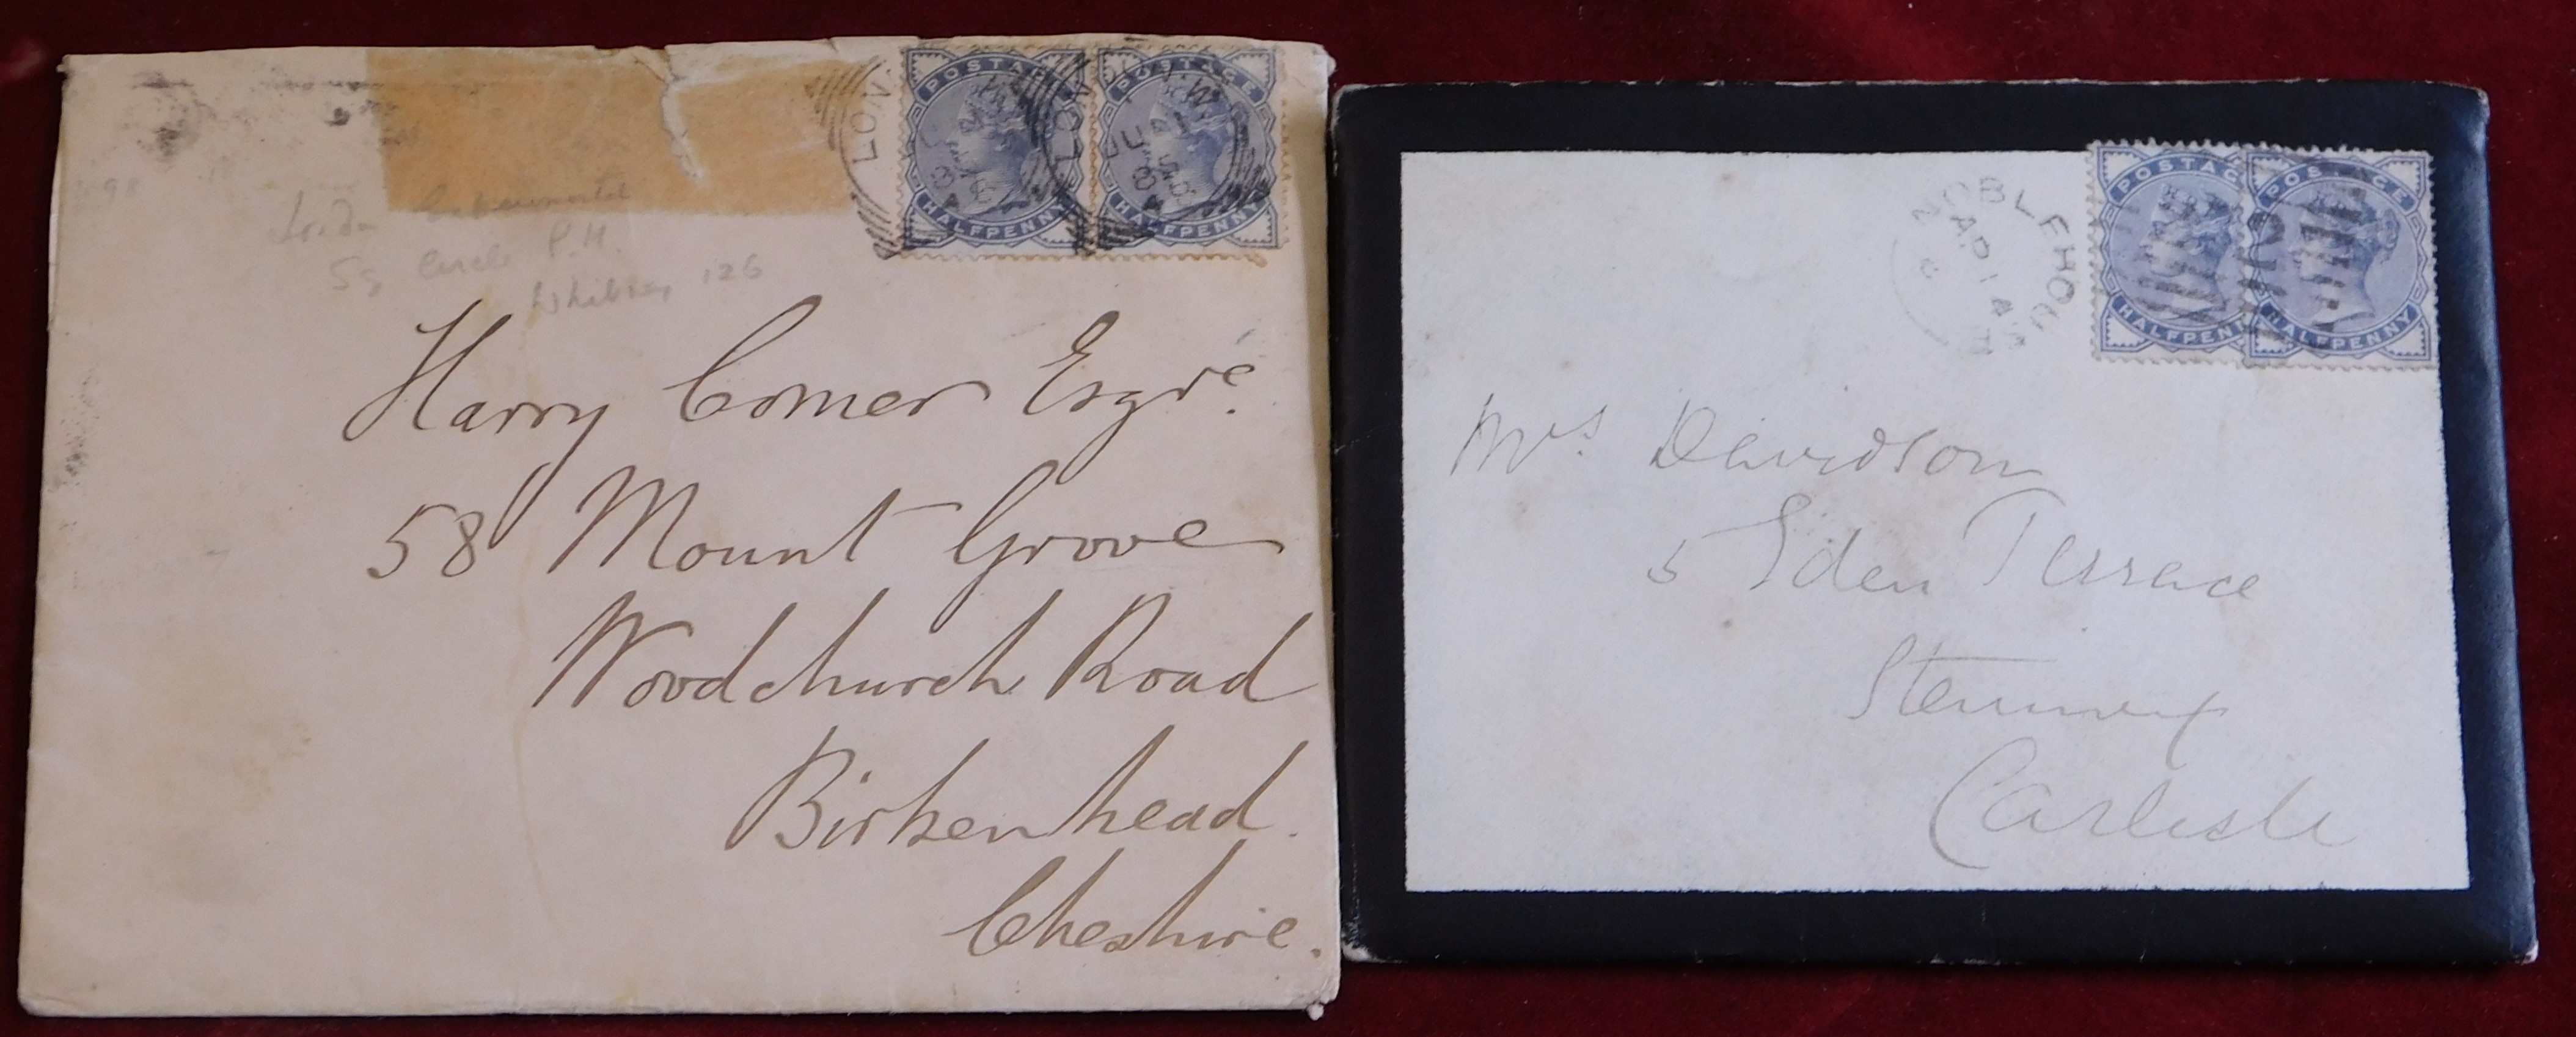 POSTAGE
HALFPENNY
POSTAGE
HALFPENNY
LON
LON W
JU 5
84
98
Sq Circle P.H.
126
Harry Comer Esqre.
58 Mount Grove
Woodchurch Road
Birkenhead.
Cheshire.
NOBLEHOU
AP 14
POSTAG
HALFPEN
POSTAGE
HALFPENNY
Mrs. Davidson
5 Eden Terrace
Carlisle